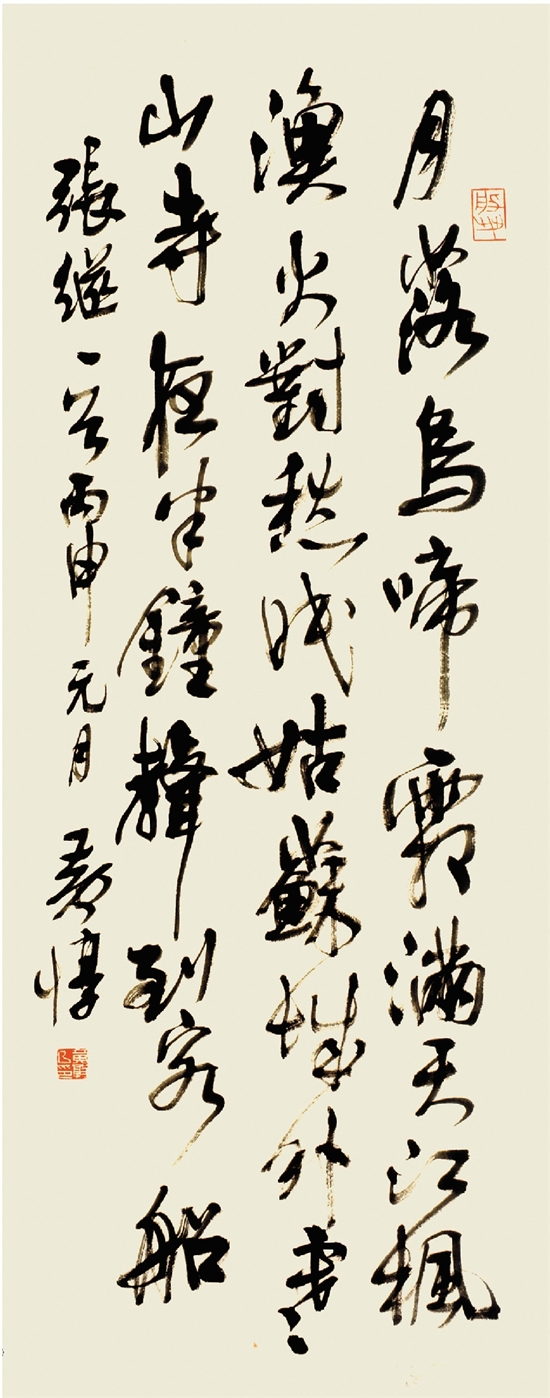 月落烏啼霜滿天江楓
漁火對愁眠姑蘇城外寒
山寺夜半鐘聲到客船
張繼一首丙申元月黄惇